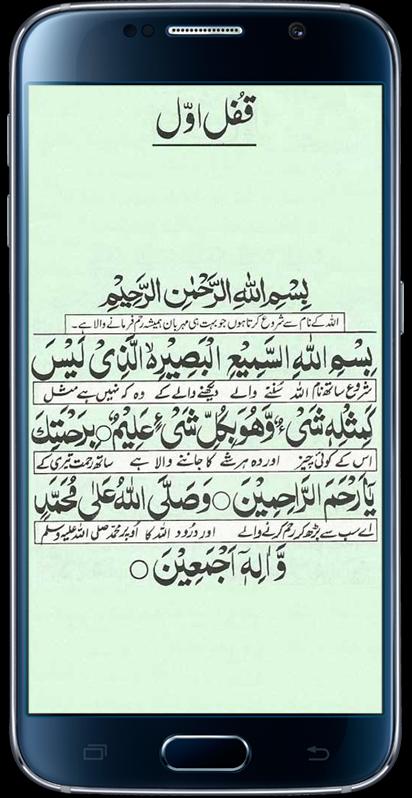 قفل اوّل
بِسْمِ اللهِ الرَّحْمٰنِ الرَّحِيْمِ
اللہ کے نام سے شروع کرتا ہوں جو بہت ہی مہربان ہمیشہ رحم فرمانے والا ہے۔
بِسْمِ اللهِ السَّمِيْعِ الْبَصِيْرِ الَّذِىْ لَيْسَ
شروع ساتھ نام اللہ سننے والے دیکھنے والے کے وہ کہ نہیں ہے مثل
كَمِثْلِهٖ شَىْءٌ وَّهُوَ بِكُلِّ شَىْءٍ عَلِيْمٌ ○ بِرَحْمَتِكَ
اس کے کوئی چیز اور وہ ہر شے کا جاننے والا ہے ساتھ رحمت تیری کے
يَا اَرْحَمَ الرَّاحِمِيْنَ ○ وَصَلَّى اللهُ عَلٰى مُحَمَّدٍ
اے سب سے بڑھ کر رحم کرنے والے اور درُود اللہ کا اُوپر محمّد صلی اللہ علیہ وسلم
وَّاٰلِهٖٓ اَجْمَعِيْنَ ○